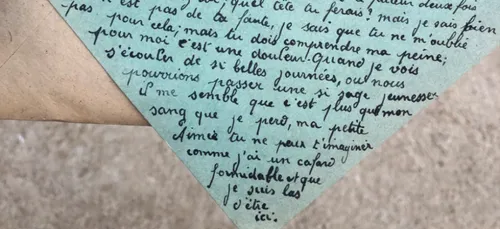 quel tête tu ferais? mais je sais bien
n'est pas de ta faute, je sais que tu ne m'oublie
pas pour cela; mais tu dois comprendre ma peine;
pour moi c'est une douleur. Quand je vois
s'écouler de si belles journées, ou nous
pourrions passer une si sage jeunesse.
Il me semble que c'est plus que mon
sang que je perd, ma petite
Aimée tu ne peux t'imaginer
comme j'ai un cafard
formidable et que
je suis las
d'être
ici.